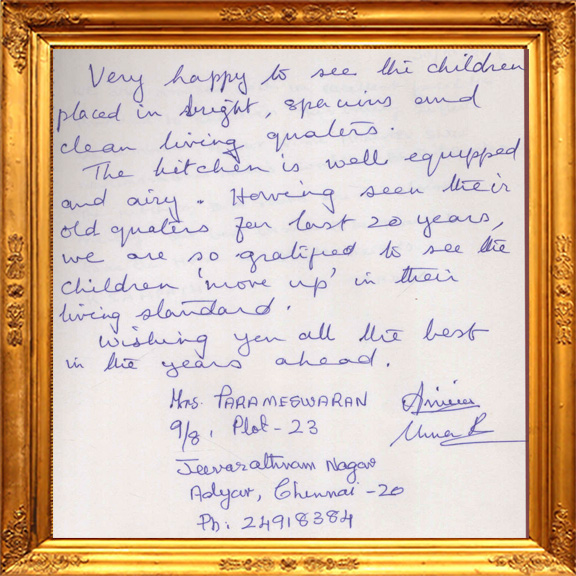 Very happy to see the children
placed in bright, spacious and
clean living quaters.
The kitchen is well equipped
and airy. Having seen their
old quaters for last 20 years,
we are so gratified to see the
children 'move up' in their
living standard.
Wishing you all the best
in the years ahead.
Mrs. PARAMESWARAN
9/8, Plot - 23
Uma R
Jeevarathnam Nagar
Adyar, Chennai - 20
Ph: 24918384